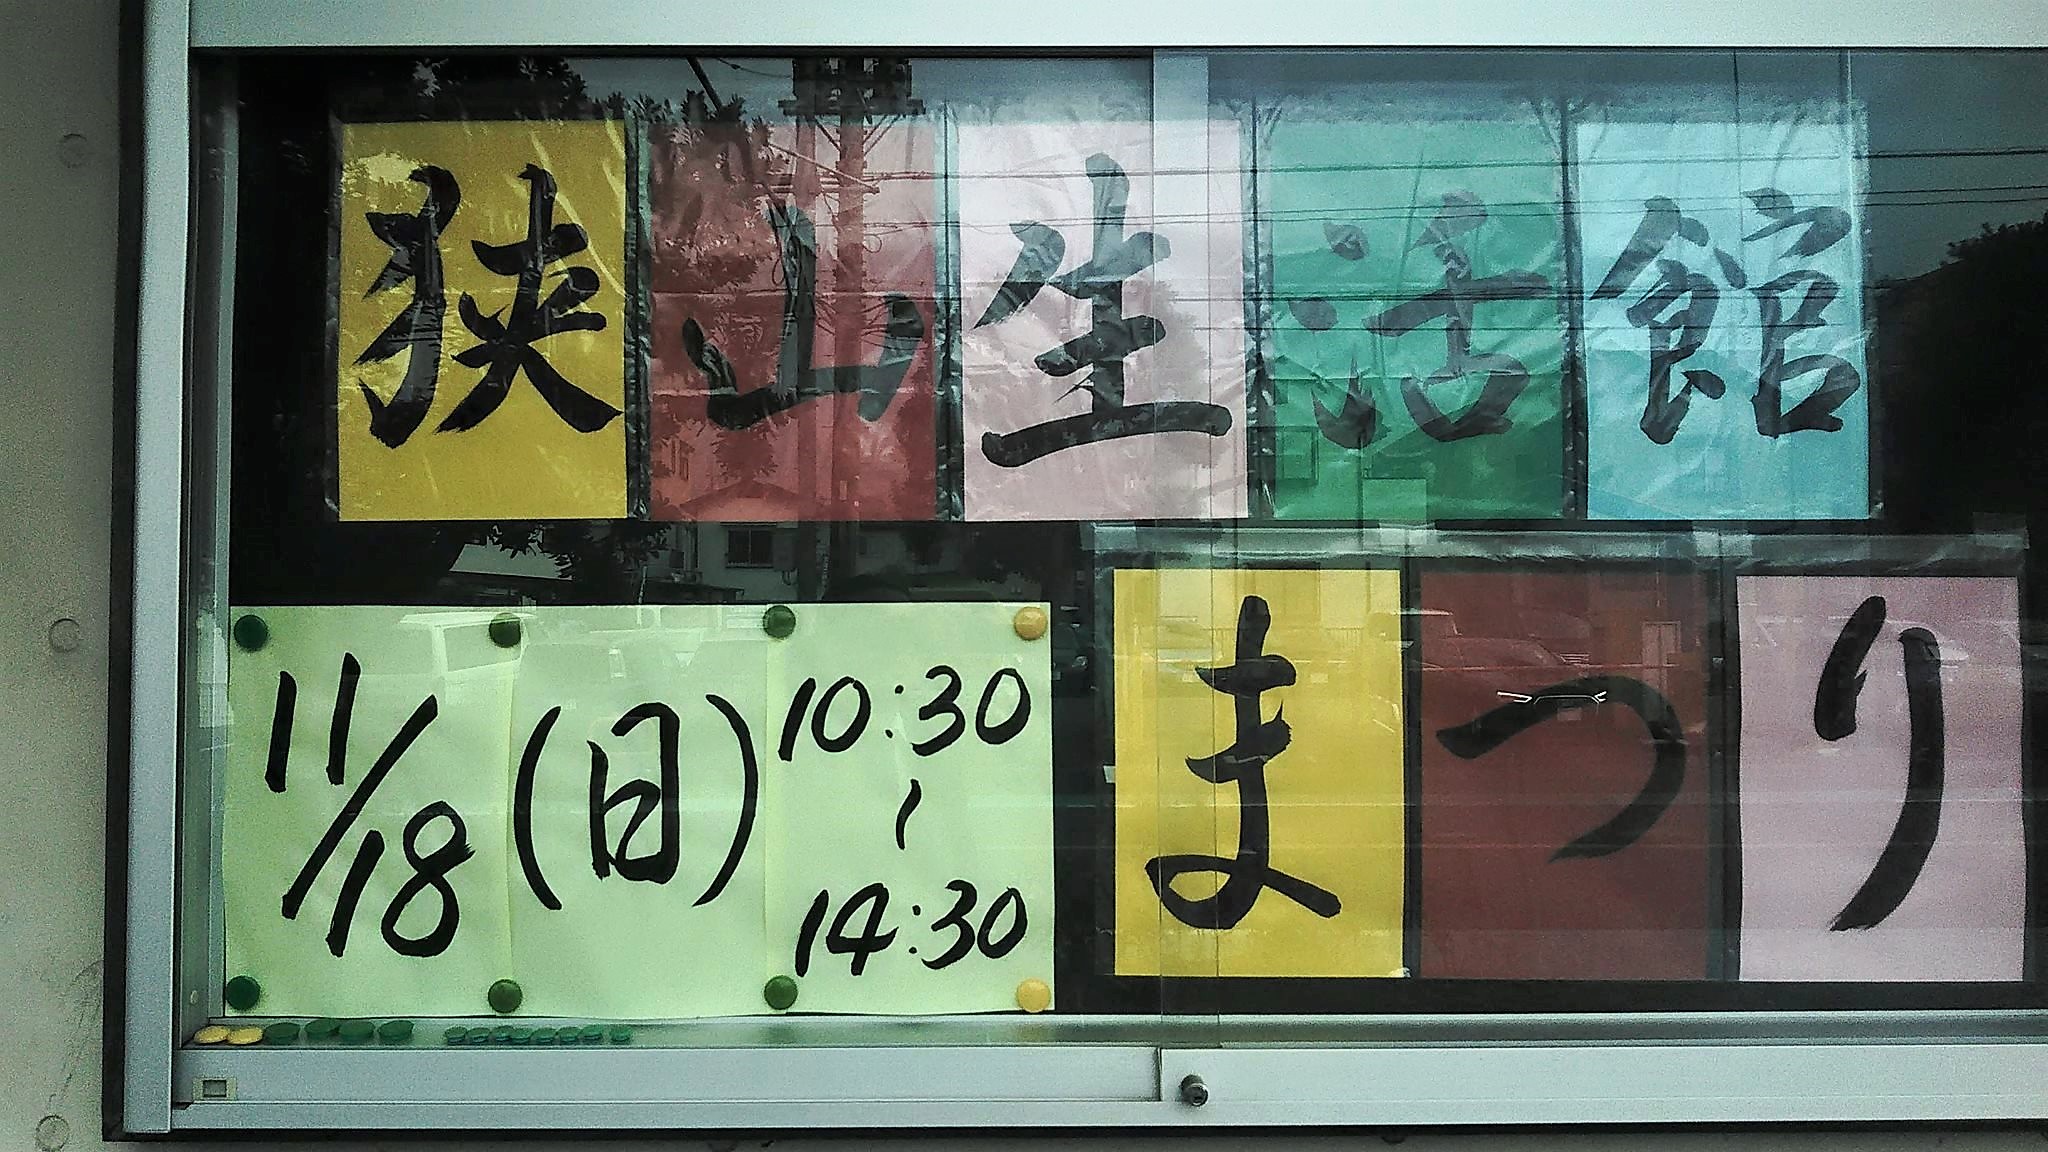 狭山生活館
まつり
11/18(日)
10:30
〜
14:30